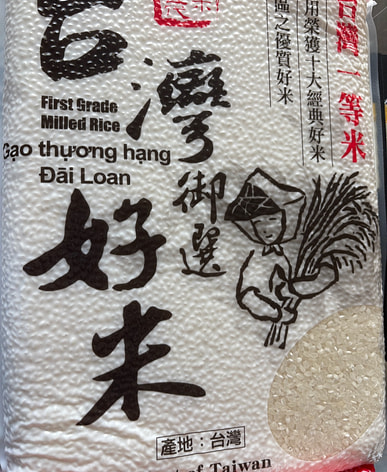 台灣
御選
好米
First Grade
Milled Rice
Gạo thượng hạng
Đãi Loan
台灣一等米
用榮獲十大經典好米
區之優質好米
產地：台灣
of Taiwan